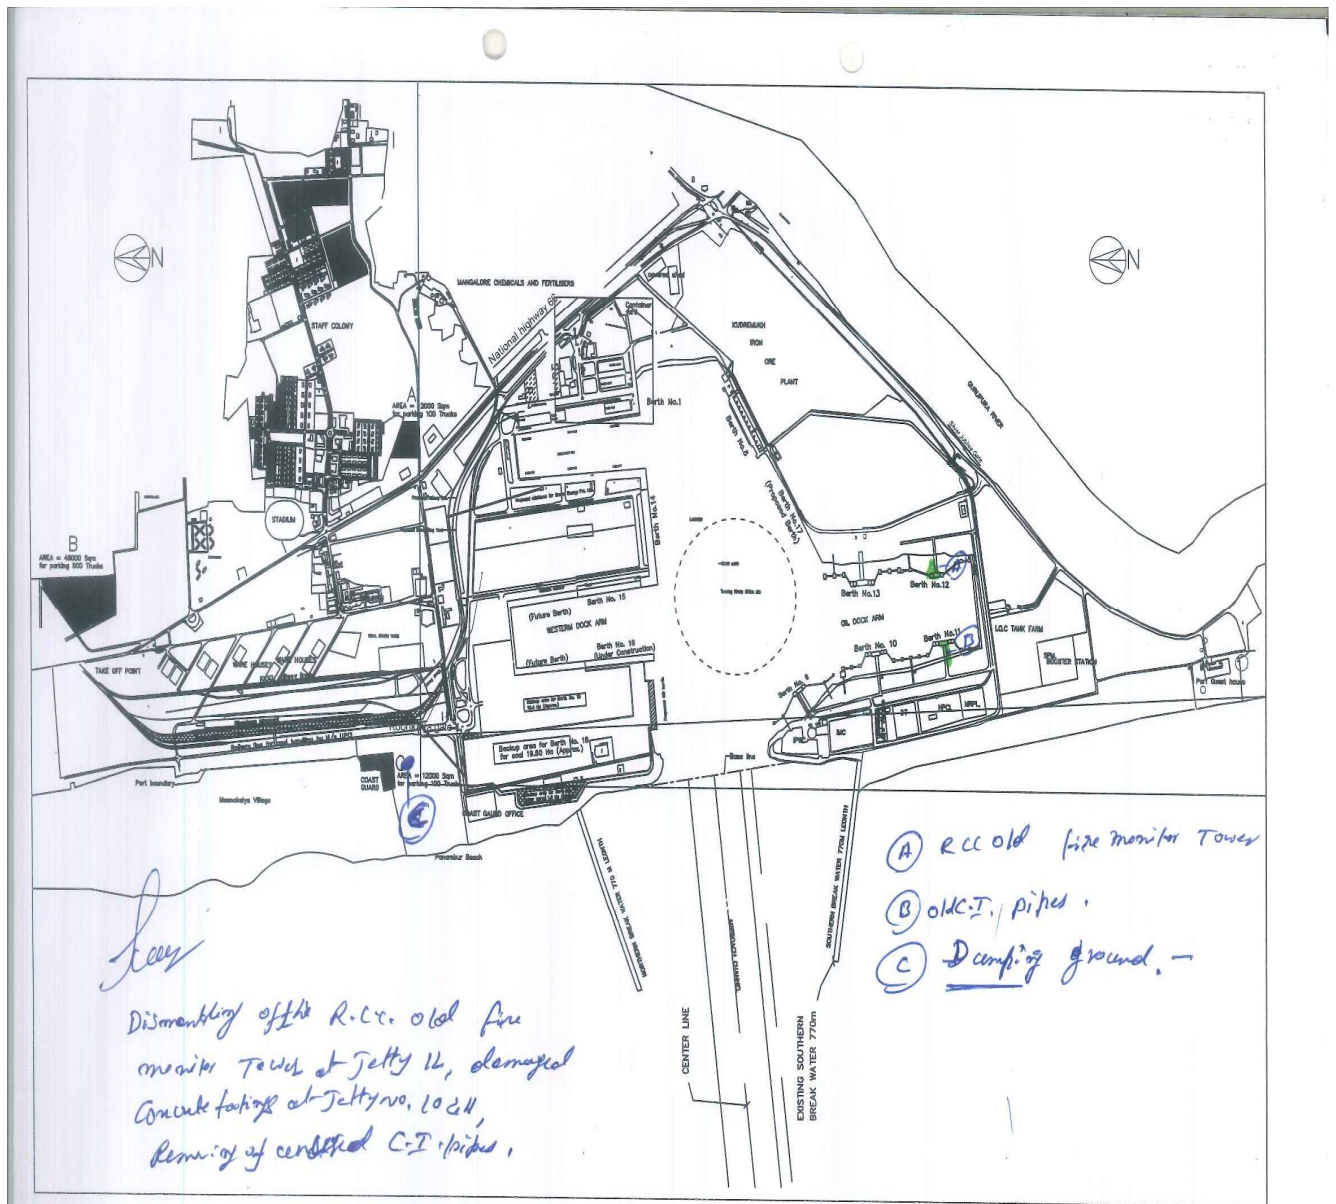 N
N
MANGALORE CHEMICALS AND FERTILISERS
National highway 66
STAFF COLONY
Container
KUDREMUKH
IRON
ORE
PLANT
GURUPURA RIVER
A
AREA = 12000 Sqm
for parking 100 Trucks
Berth No.1
Berth No.8
Berth No.17
(Proposed Berth)
Berth No.14
STADIUM
B
AREA = 48000 Sqm
for parking 500 Trucks
A
Berth No.12
Berth No.13
Berth No. 15
(Future Berth)
WESTERN DOCK ARM
Berth No. 16
(Under Construction)
(Future Berth)
OIL DOCK ARM
Berth No. 10
Berth No.11
B
Berth No. 9
I.O.C TANK FARM
BOOSTER STATION
Port Guest house
TAKE OFF POINT
WARE HOUSES
WARE HOUSES
HPCL
MRPL
Backup area for Berth No. 16
for coal 19.50 Ha (Approx.)
Base line
Port boundary
Meenakaliya Village
COAST
GUARD
AREA = 12000 Sqm
for parking 100 Trucks
C
COAST GAURD OFFICE
Panambur Beach
NORTHERN BREAK WATER 770 M LEGNTH
APPROACH CHANNEL
SOUTHERN BREAK WATER 770M LEGNTH
CENTER LINE
EXISTING SOUTHERN
BREAK WATER 770m
A RCC old fire monitor Tower
B old C.I. pipes.
C Dumping ground. -
Dismantling of the R.C.C. old fire
monitor Tower at Jetty 12, damaged
Concrete footings at Jetty no. 10 & 11,
of C.I. pipes.